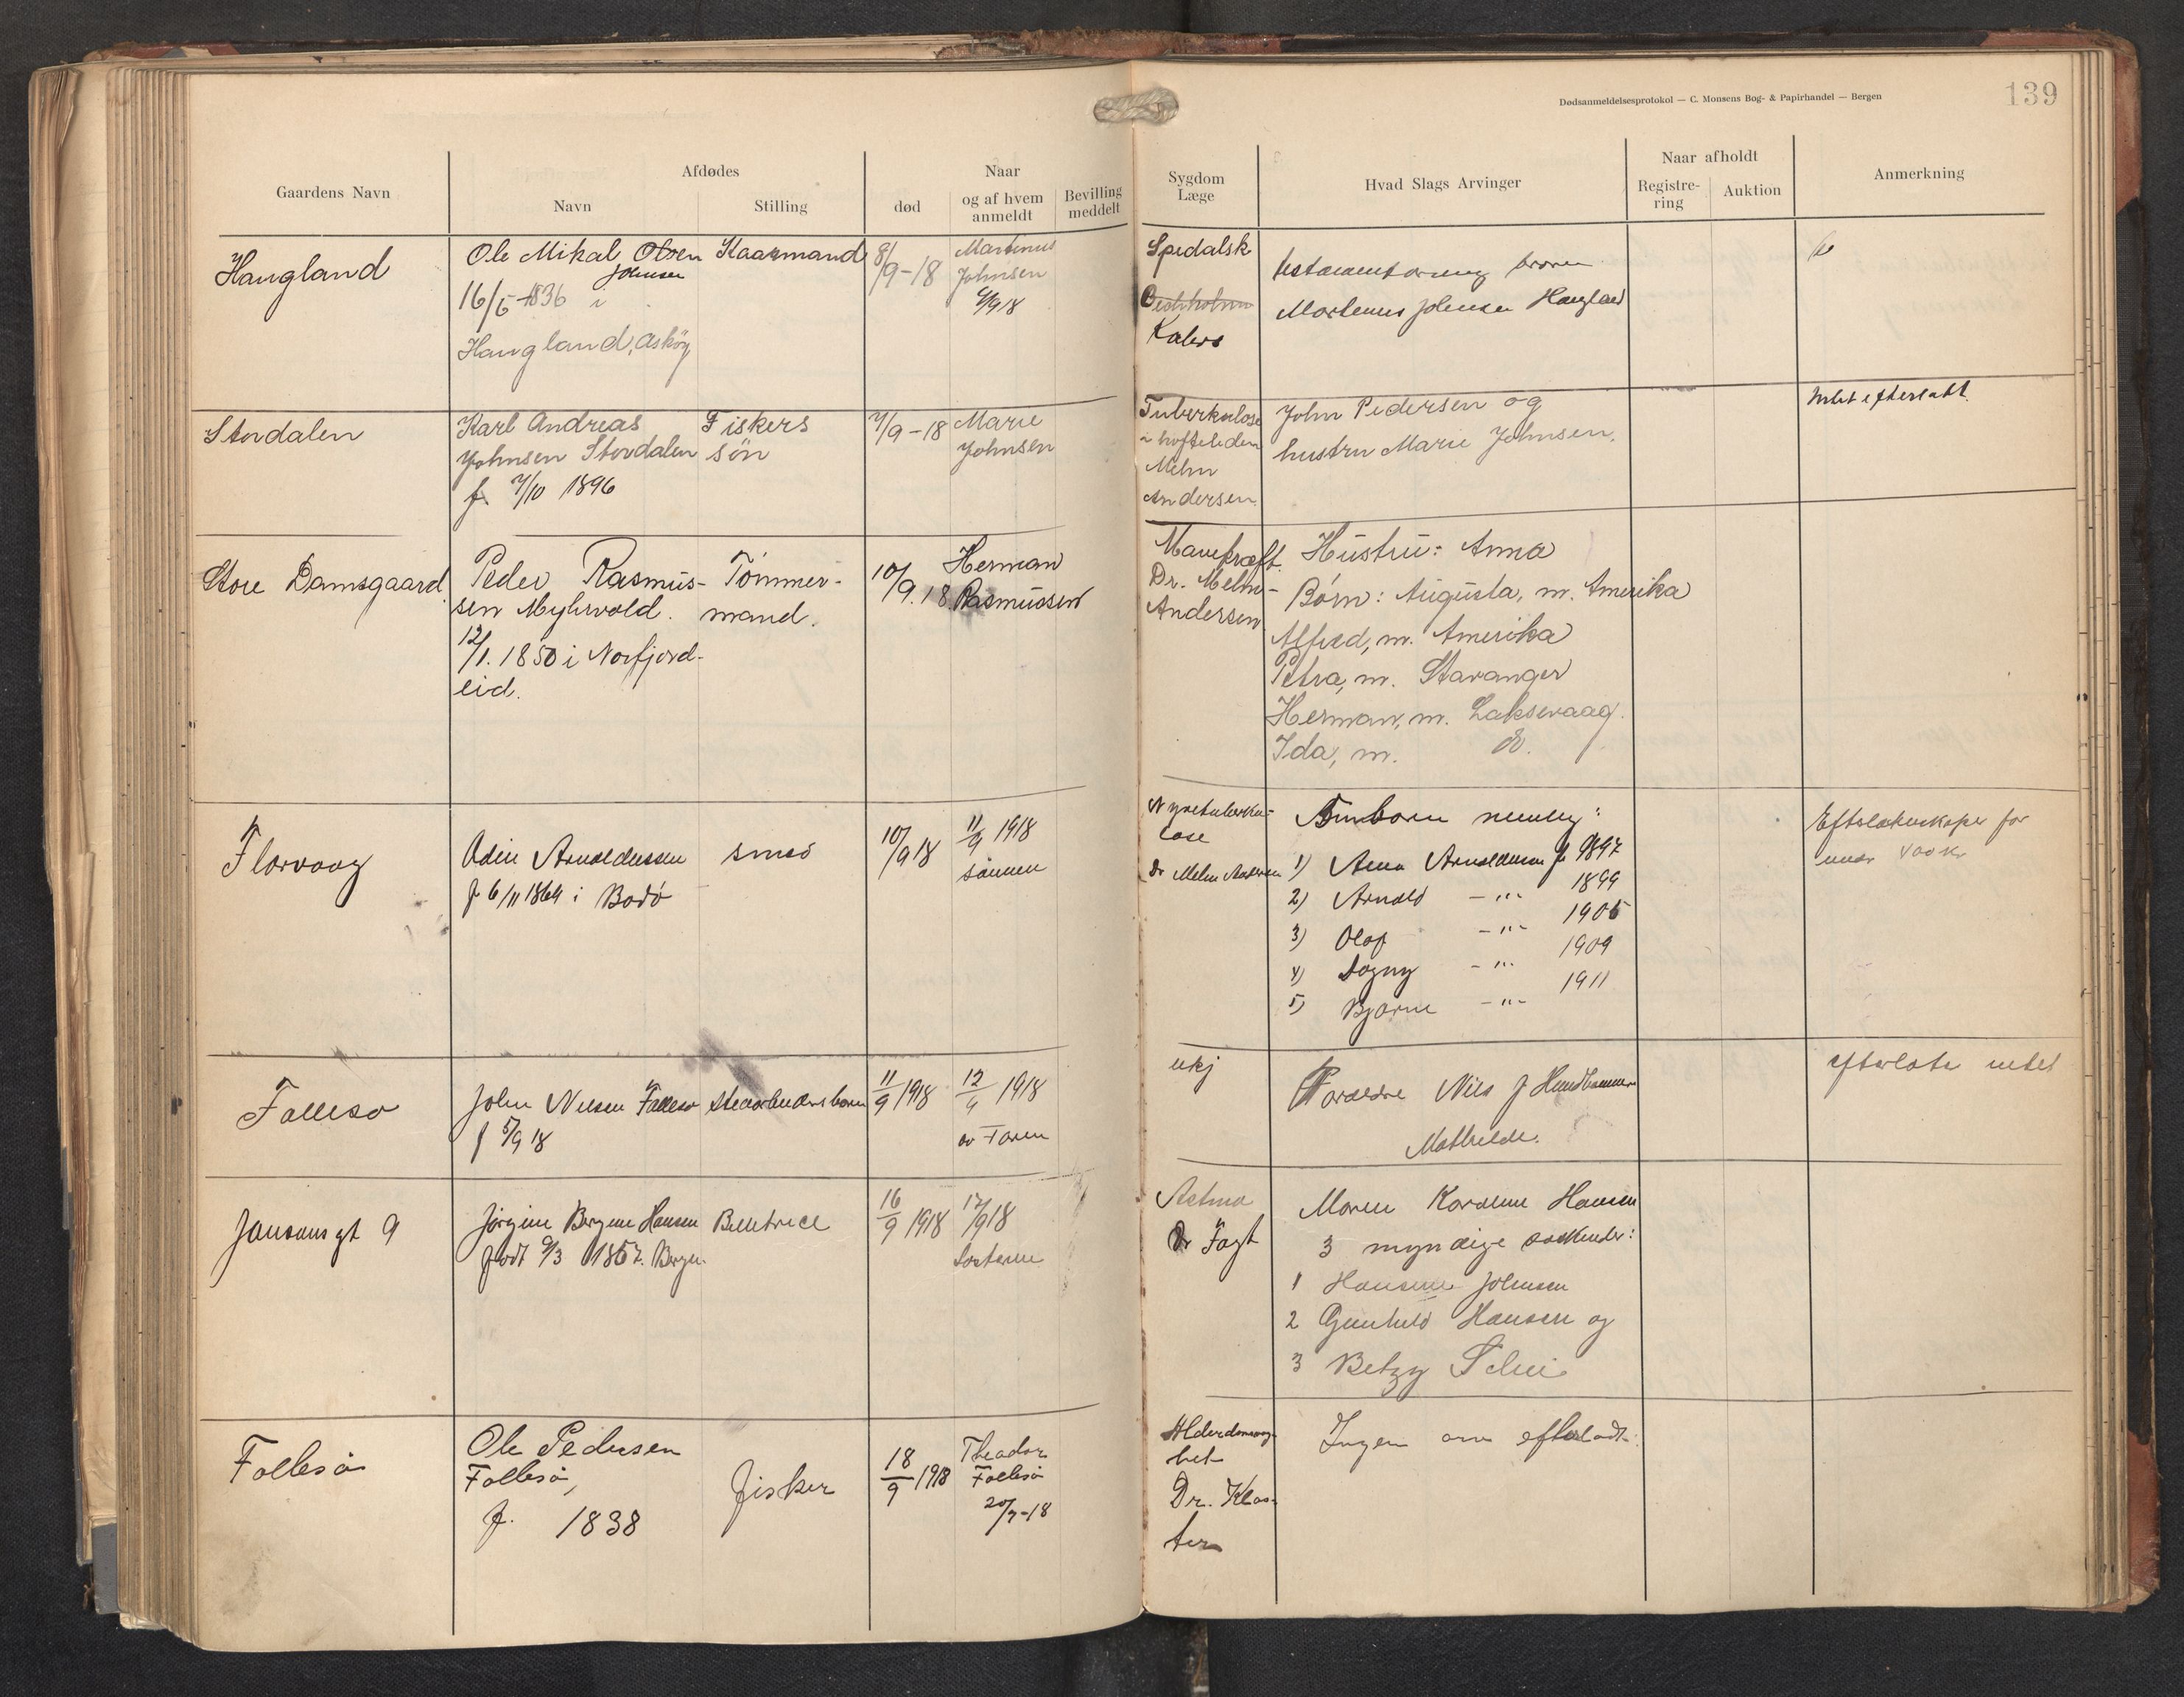 Dødsanmeldelsesprotokol — C. Monsens Bog- & Papirhandel — Bergen
139
Gaardens Navn
Afdødes
Navn
Stilling
Naar
død
og af hvem anmeldt
Bevilling meddelt
Sygdom
Læge
Hvad Slags Arvinger
Naar afholdt
Registre-
ring
Auktion
Anmerkning
Haugland
Ole Mikal Olsen
Johnsen
16/5-1836 i
Haugland, Askøy
Kaarmand
8/9-18
Martinus
Johnsen
9/9 18
Spedalsk
Kalvs
broren
Martinus Johnsen Haugland
Stordalen
Karl Andreas
Johnsen Stordalen
f. 7/10 1896
Fiskers
søn
7/9-18
Marie
Johnsen
Tuberkulose
i hofteleden
Melm
Andersen
John Pedersen og
hustru Marie Johnsen.
Intet efterladt.
Store Damsgaard
Peder Rasmus-
sen Myhrvold.
12/1. 1850 i Norfjord-
eid.
Tømmer-
mand.
10/9. 18.
Herman
Rasmussen
Mavekræft.
Dr. Melm-
Andersen
Hustru: Anna
Børn: Augusta, m. Amerika
Alfred, m. Amerika
Petra, m. Stavanger
Herman, m. Laksevaag.
Ida, m. do.
Florvaag
Odin Arnoldussen
f 6/11 1864 i Bodø
smed
10/9 18
11/9 1918
sønnen
Nyretuberku-
lose
Dr Melm Andersen
Fem barn nemlig:
1) Anna Arnoldussen f 1897
2) Arnold -"- 1899
3) Olaf -"- 1905
4) Dagny -"- 1909
5) Bjarne -"- 1911
Follesø
John Nilsen Follesø
f 5/9 18
11/9 1918
12/9 1918
av Faren
ukj
Forældre Nils J Hundhammer
Mathilde.
efterlate intet
Jansons gt 9
Jørgine Bergine Hansen
født 9/3 1857. Bergen.
16/9 1918
17/9 18
Søsteren
Astma
Dr Fagt
Maren Karoline Hansen
3 myndige søskender:
1 Hansine Johnsen
2 Gunhild Hansen og
3 Betzy
Follesø
Ole Pedersen
Follesø,
f. 1838
Fisker
18/9 1918
Theodor
Follesø
20/9-18
Alderdomssvag-
het
Dr. Klos-
ter
Ingen arv efterladt.